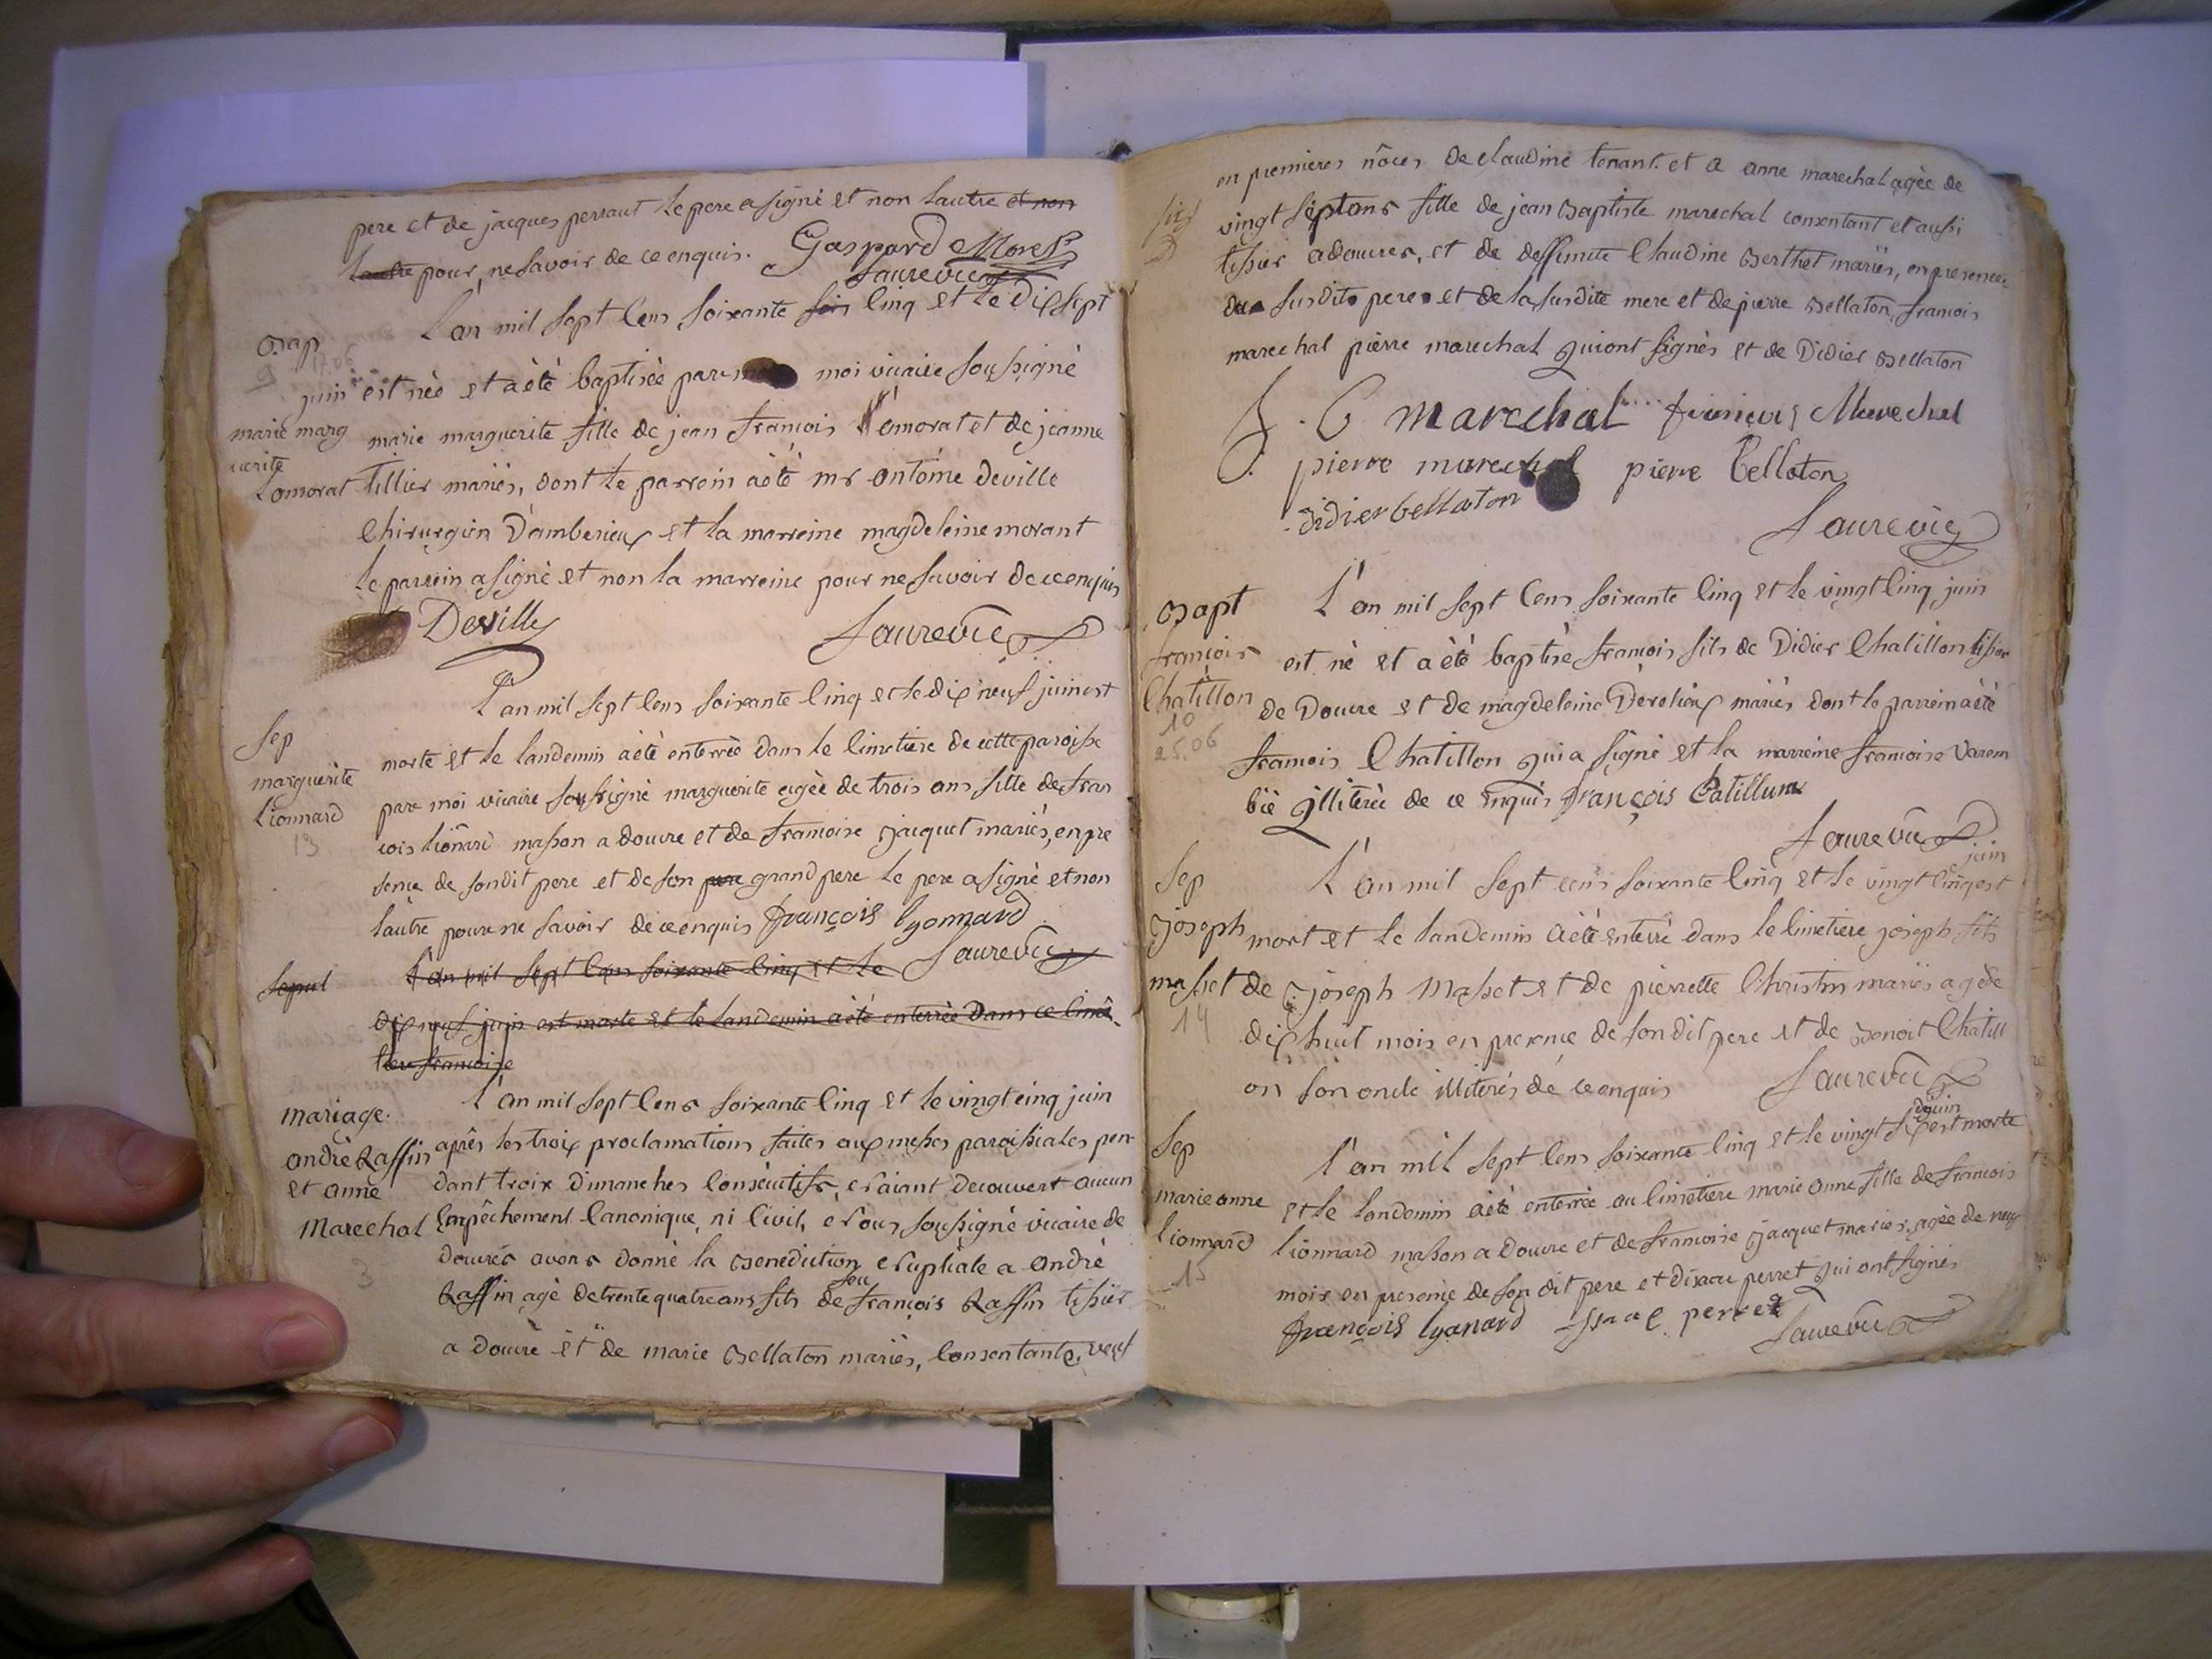 pere et de jacques perraut le pere a signé et non lautre et non
lautre pour ne savoir de ce enquis. Gaspard Morel
Laure vic
L'an mil sept cens soixante six cinq et le dix sept
Bap
9 17.06
juin est née et a été baptisée par moi vicaire soussigné
marie marg
uerite
Lomorat
marie marguerite fille de jean francois Lomorat et de jeanne
tillier mariés, dont le parrein a été mr antoine deville
Chirurgien D'amberieux et la marreine magdeleine morant
le parrein a signé et non la marreine pour ne savoir de ce enquis
Deville Laure vic
L'an mil sept cens soixante cinq et le dix neuf juin est
Sep
marguerite
Lionnard
13
morte et le landemin a été enterrée dans le cimetiere de cette paroisse
par moi vicaire soussigné marguerite agée de trois ans fille de fran
cois lionard masson a douvre et de francoise jacquet mariés, en pre
sence de sondit pere et de son pere grand pere le pere a signé et non
l'autre pour ne savoir de ce enquis françois lyonnard
Laure vic
Sepul
L'an mil sept cens soixante cinq et le
dix neuf juin est morte et le landemin a été enterrée dans ce cime
tiere francoise
L'an mil sept cens soixante cinq et le vingt cinq juin
mariage.
andrè Raffin
et anne
Marechal
3
après les troix proclamations faites aux messes paroissiales pen
dant troix dimanches consécutifs, n'aiant decouvert aucun
empêchement canonique, ni civil, Nous soussigné vicaire de
douvres avons donné la Benediction Nuptiale a andré
Raffin agé de trente quatre ans fils de feu francois Raffin tissier
a douvre et de marie Bellaton mariés, consentante, veuf
en premieres nôces de claudine tenant et a anne marechal agée de
vingt sept ans fille de jean Baptiste marechal consentant et aussi
tissier a douvres, et de deffunte Claudine Berthet mariés, en presence
du susdits pere et de la susdite mere et de pierre Bellaton, francois
marechal pierre marechal qui ont signés et de Didier Bellaton
J. B marechal francois Marechal
pierre marechal pierre bellaton
didier bellaton
Laure vic
Bapt
francois
Chatillon
10
25.06
L'an mil sept cens soixante cinq et le vingt cinq juin
est né et a été baptisé francois fils de Didier Chatillon tissier
de Douvre et de magdeleine Derolieux mariés dont le parrein a été
francois Chatillon qui a signé et la marreine francoise Varem
bié illiterée de ce enquis françois Catillum
Laure vic
Sep
joseph
masset
14
L'an mil sept cens soixante cinq et le vingt cinq juin est
mort et le landemin a été enterré dans le cimetiere joseph fils
de joseph Masset et de pierrette Christin mariés agé de
dix huit mois en presence de son dit pere et de Benoit Chatill
on son oncle illiterés de ce enquis Laure vic
Sep
marie anne
lionnard
15
L'an mil sept cens soixante cinq et le vingt six juin est morte
et le landemin a été enterrée au cimetiere marie anne fille de francois
lionnard masson a Douvre et de francoise jacquet mariés, agée de neuf
mois en presence de son dit pere et d'isaac perret qui ont signés
françois lyonard isaac perret Laure vic